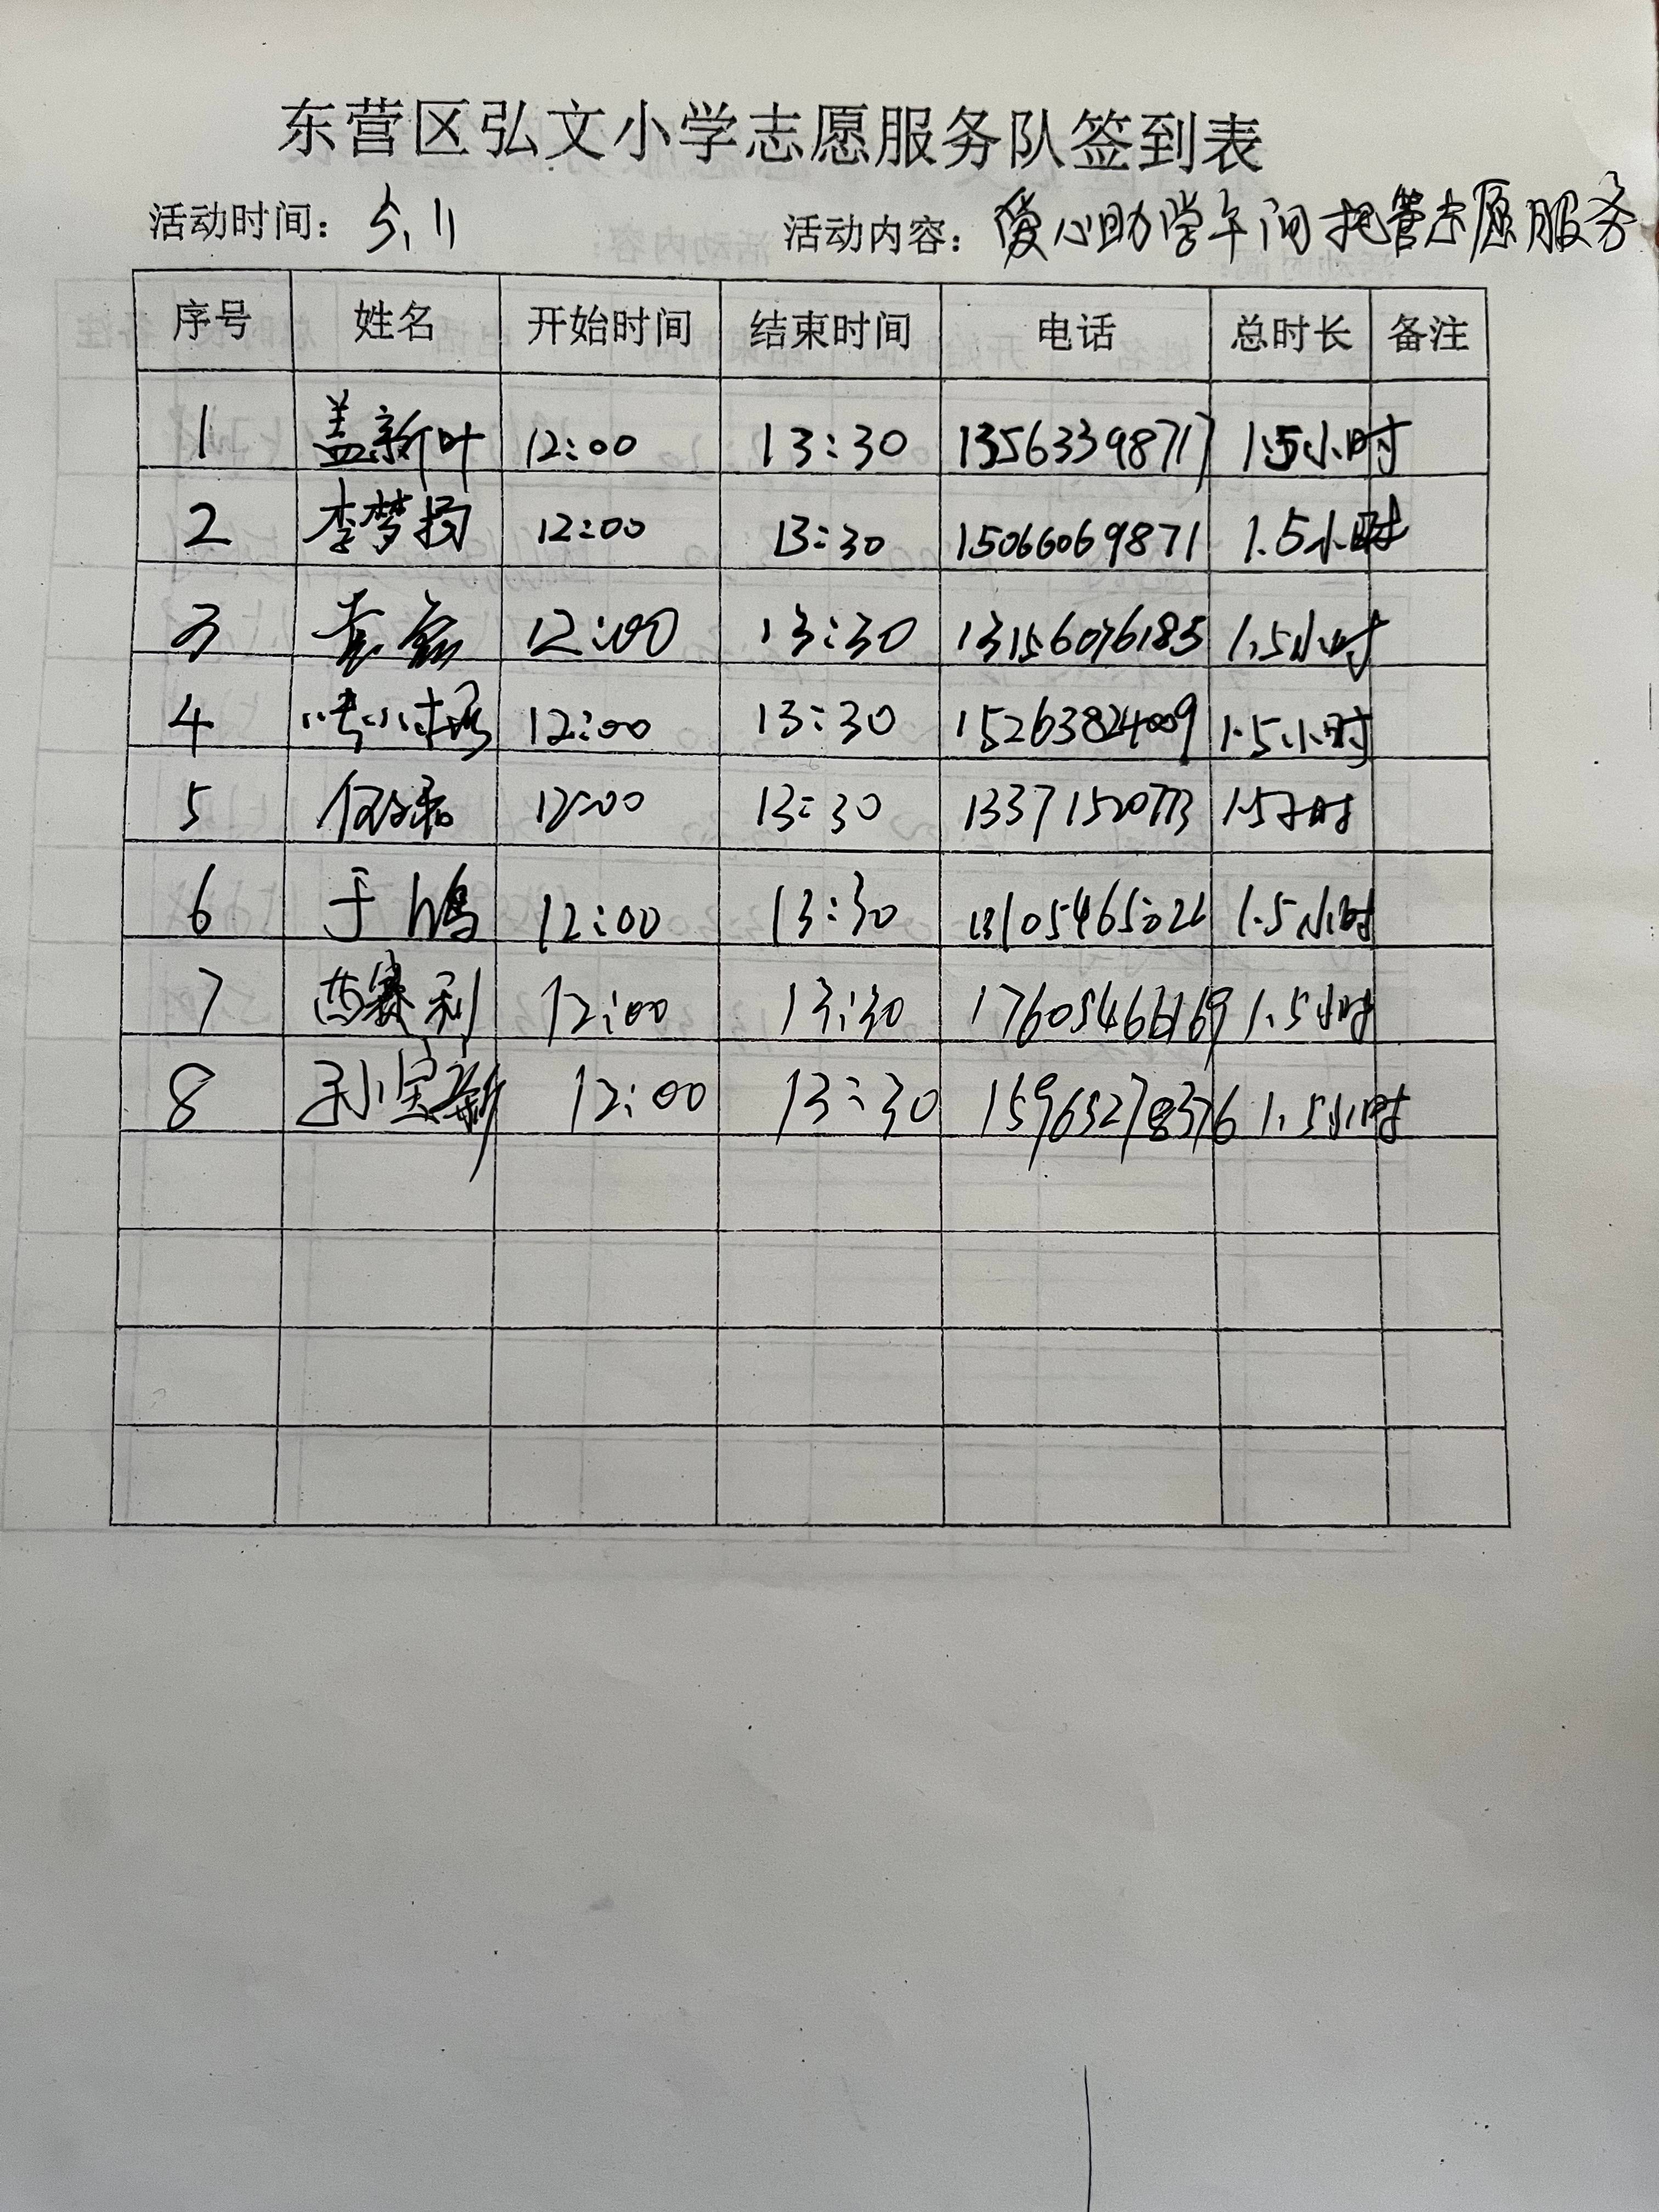 东营区弘文小学志愿服务队签到表
活动时间: 5.11 活动内容: 爱心助学午间托管志愿服务
序号 姓名 开始时间 结束时间 电话 总时长 备注
1 盖新叶 12:00 13:30 13563398717 1.5小时
2 李梦 12:00 13:30 15066069871 1.5小时
3 12:00 13:30 13156076185 1.5小时
4 12:00 13:30 15263824009 1.5小时
5 12:00 13:30 13371520773 1.5小时
6 于鸿 12:00 13:30 1.5小时
7 西赛利 12:00 13:30 17605466169 1.5小时
8 孙宝新 12:00 13:30 15963278376 1.5小时